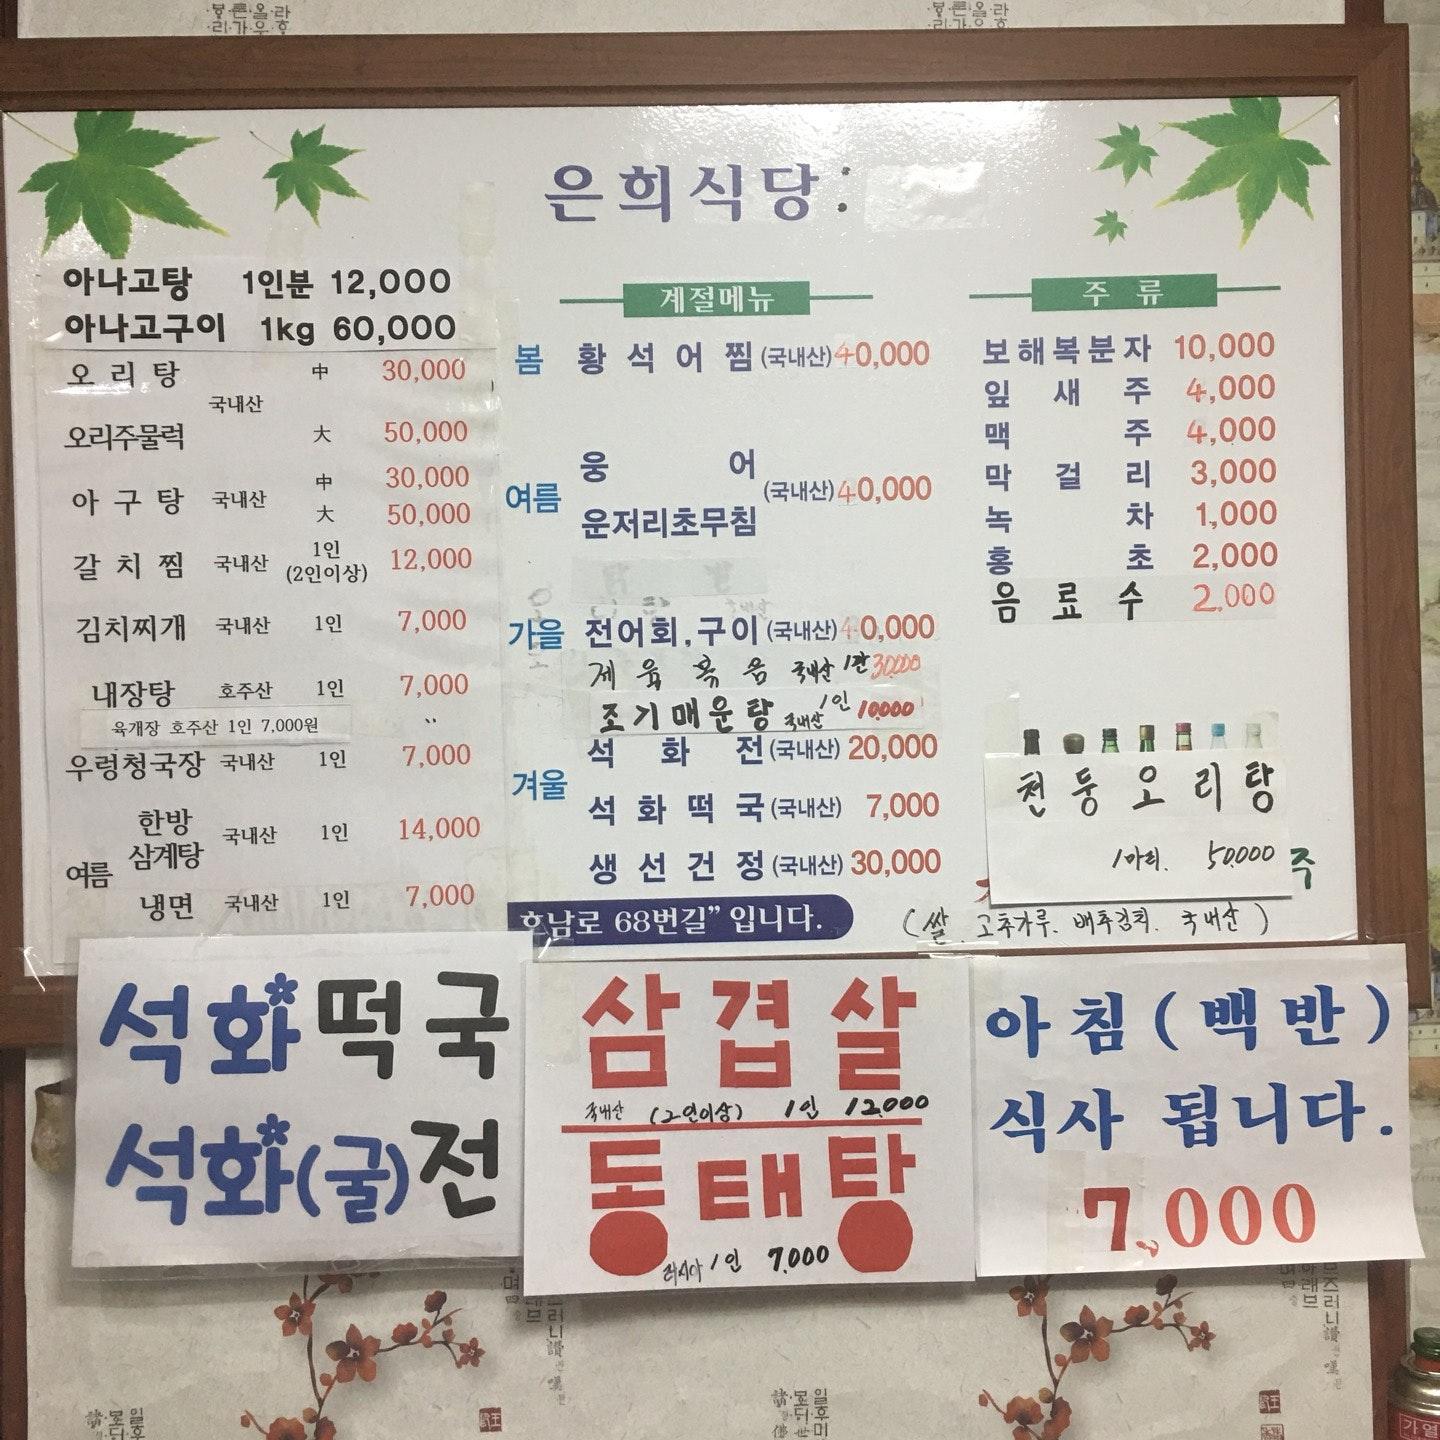 은희식당:
아나고탕 1인분 12,000
아나고구이 1kg 60,000
오리탕 中 30,000
국내산
오리주물럭 大 50,000
아구탕 국내산 中 30,000
大 50,000
갈치찜 국내산 1인 (2인이상) 12,000
김치찌개 국내산 1인 7,000
내장탕 호주산 1인 7,000
육개장 호주산 1인 7,000원
우렁청국장 국내산 1인 7,000
여름
한방삼계탕 국내산 1인 14,000
냉면 국내산 1인 7,000
계절메뉴
봄 황석어찜 (국내산) 40,000
여름 웅어
운저리초무침 (국내산) 40,000
가을 전어회,구이 (국내산) 40,000
제육볶음 국내산 1판 30,000
조기매운탕 국내산 1인 10,000
겨울
석화전 (국내산) 20,000
석화떡국 (국내산) 7,000
생선건정 (국내산) 30,000
호남로 68번길” 입니다.
주류
보해복분자 10,000
잎새주 4,000
맥주 4,000
막걸리 3,000
녹차 1,000
홍초 2,000
음료수 2,000
천둥오리탕
1마리. 50,000
주
(쌀. 고추가루. 배추김치. 국내산)
석화떡국
석화(굴)전
삼겹살
국내산 (2인이상) 1인 12,000
동태탕
러시아 1인 7,000
아침(백반)
식사 됩니다.
7,000
가열